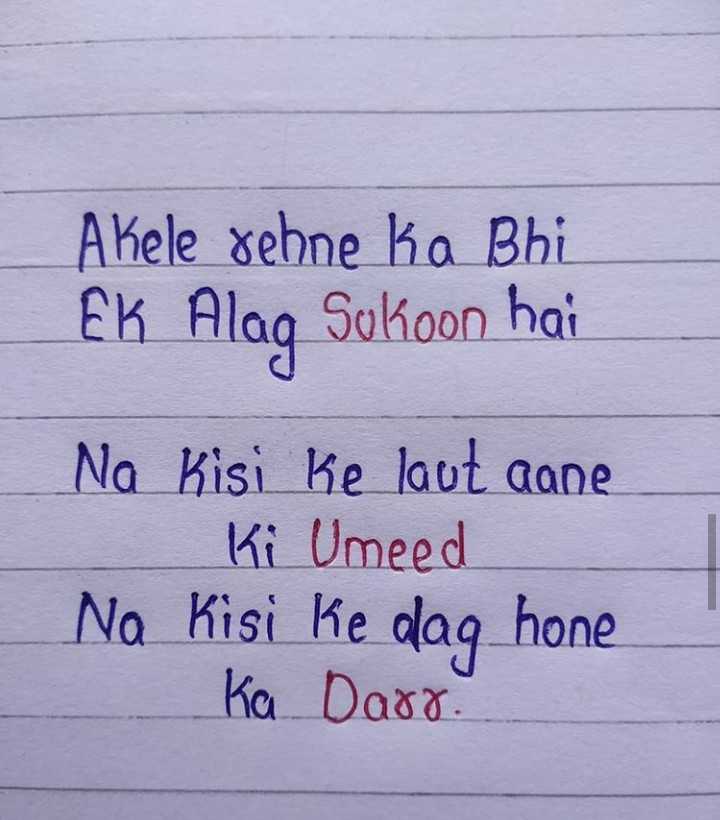 Akele rehne Ka Bhi
EK Alag Sukoon hai
Na Kisi Ke laut aane
Ki Umeed
Na Kisi Ke alag hone
Ka Darr.